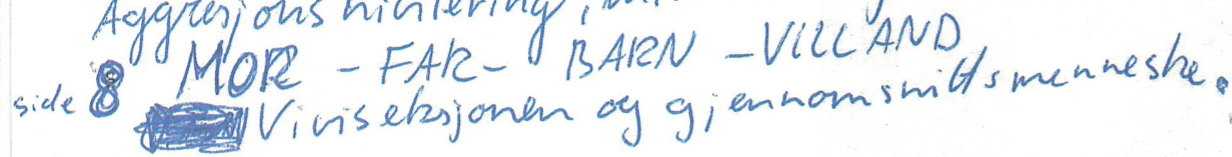 Aggresjonshindering,
MOR - FAR - BARN - VILLAND
side 8 Viviseksjonen og gjennomsnittsmenneske.